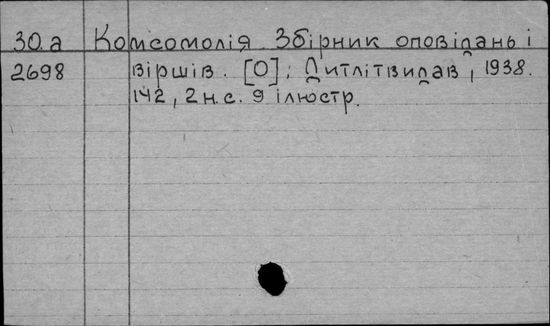 30.а Комсомолія. Збірник оповідань і
2698 віршів. [О]; Дитлітвидав, 1938.
142, 2 н.с. 9 ілюстр.